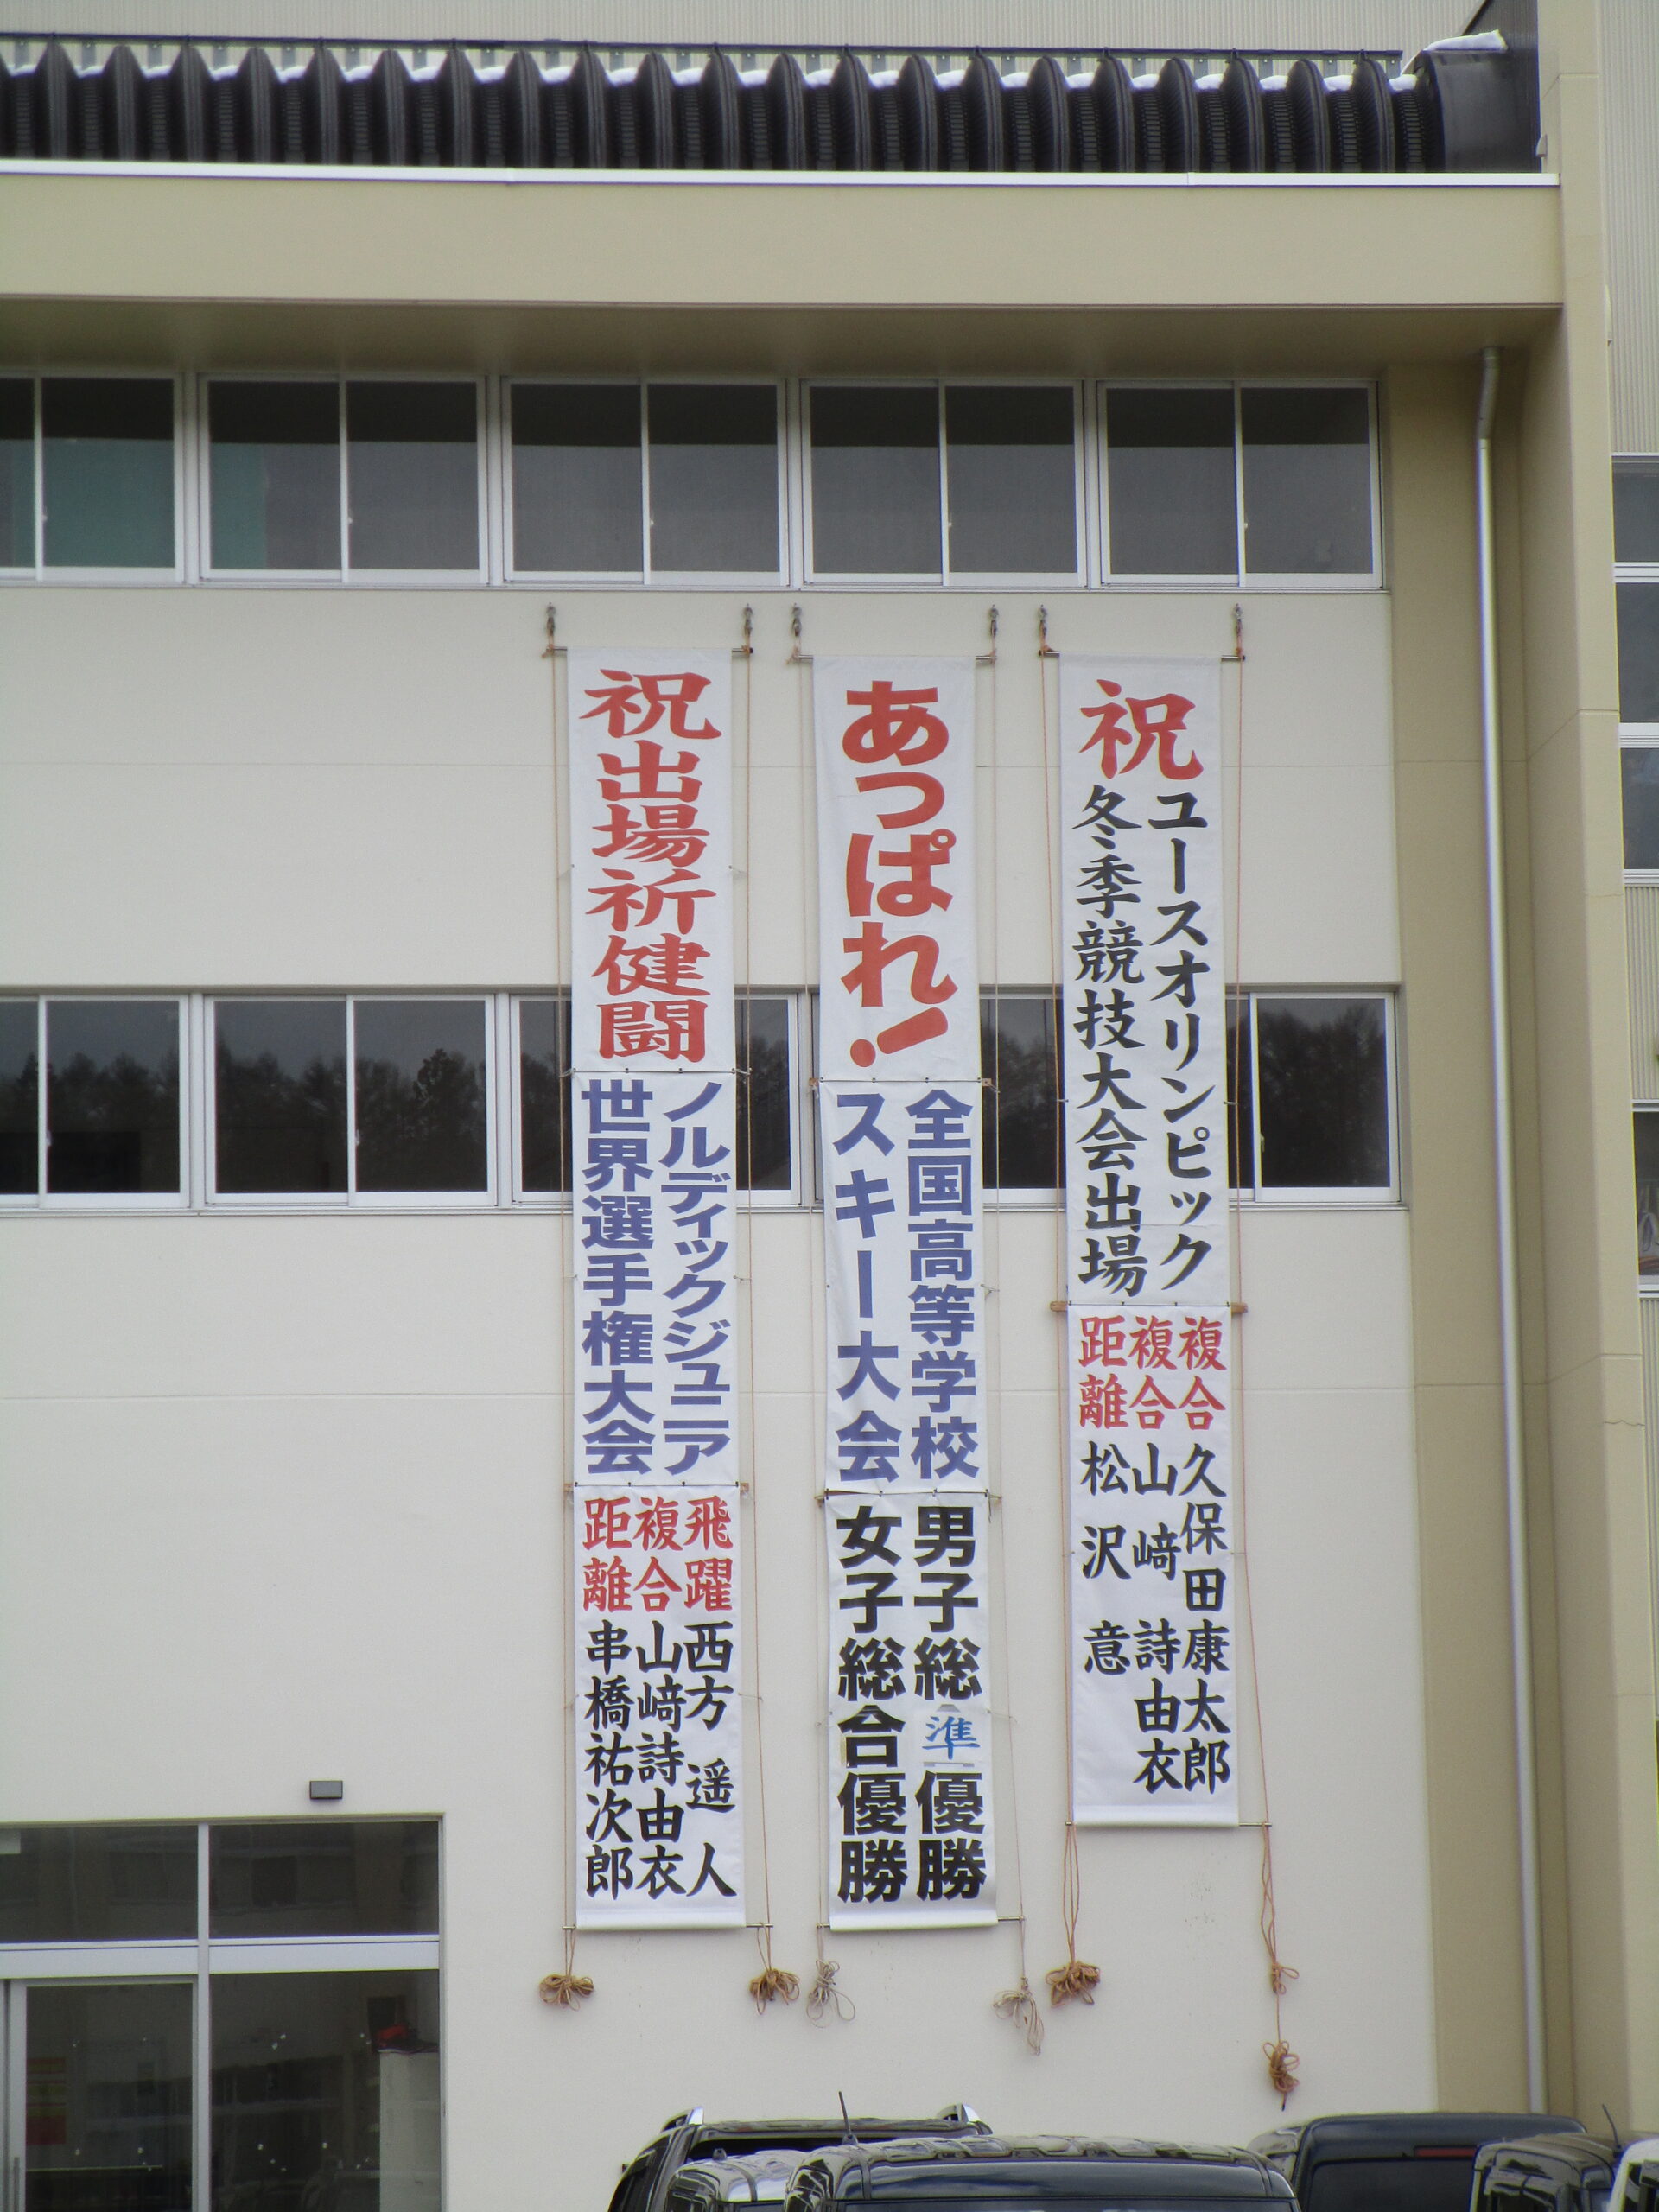 祝
ユースオリンピック
冬季競技大会出場
複合 久保田康太郎
複合 山﨑詩由衣
距離 松沢意
あっぱれ!
全国高等学校
スキー大会
男子総準優勝
女子総合優勝
祝出場祈健闘
ノルディックジュニア
世界選手権大会
飛躍 西方遥人
複合 山﨑詩由衣
距離 串橋祐次郎